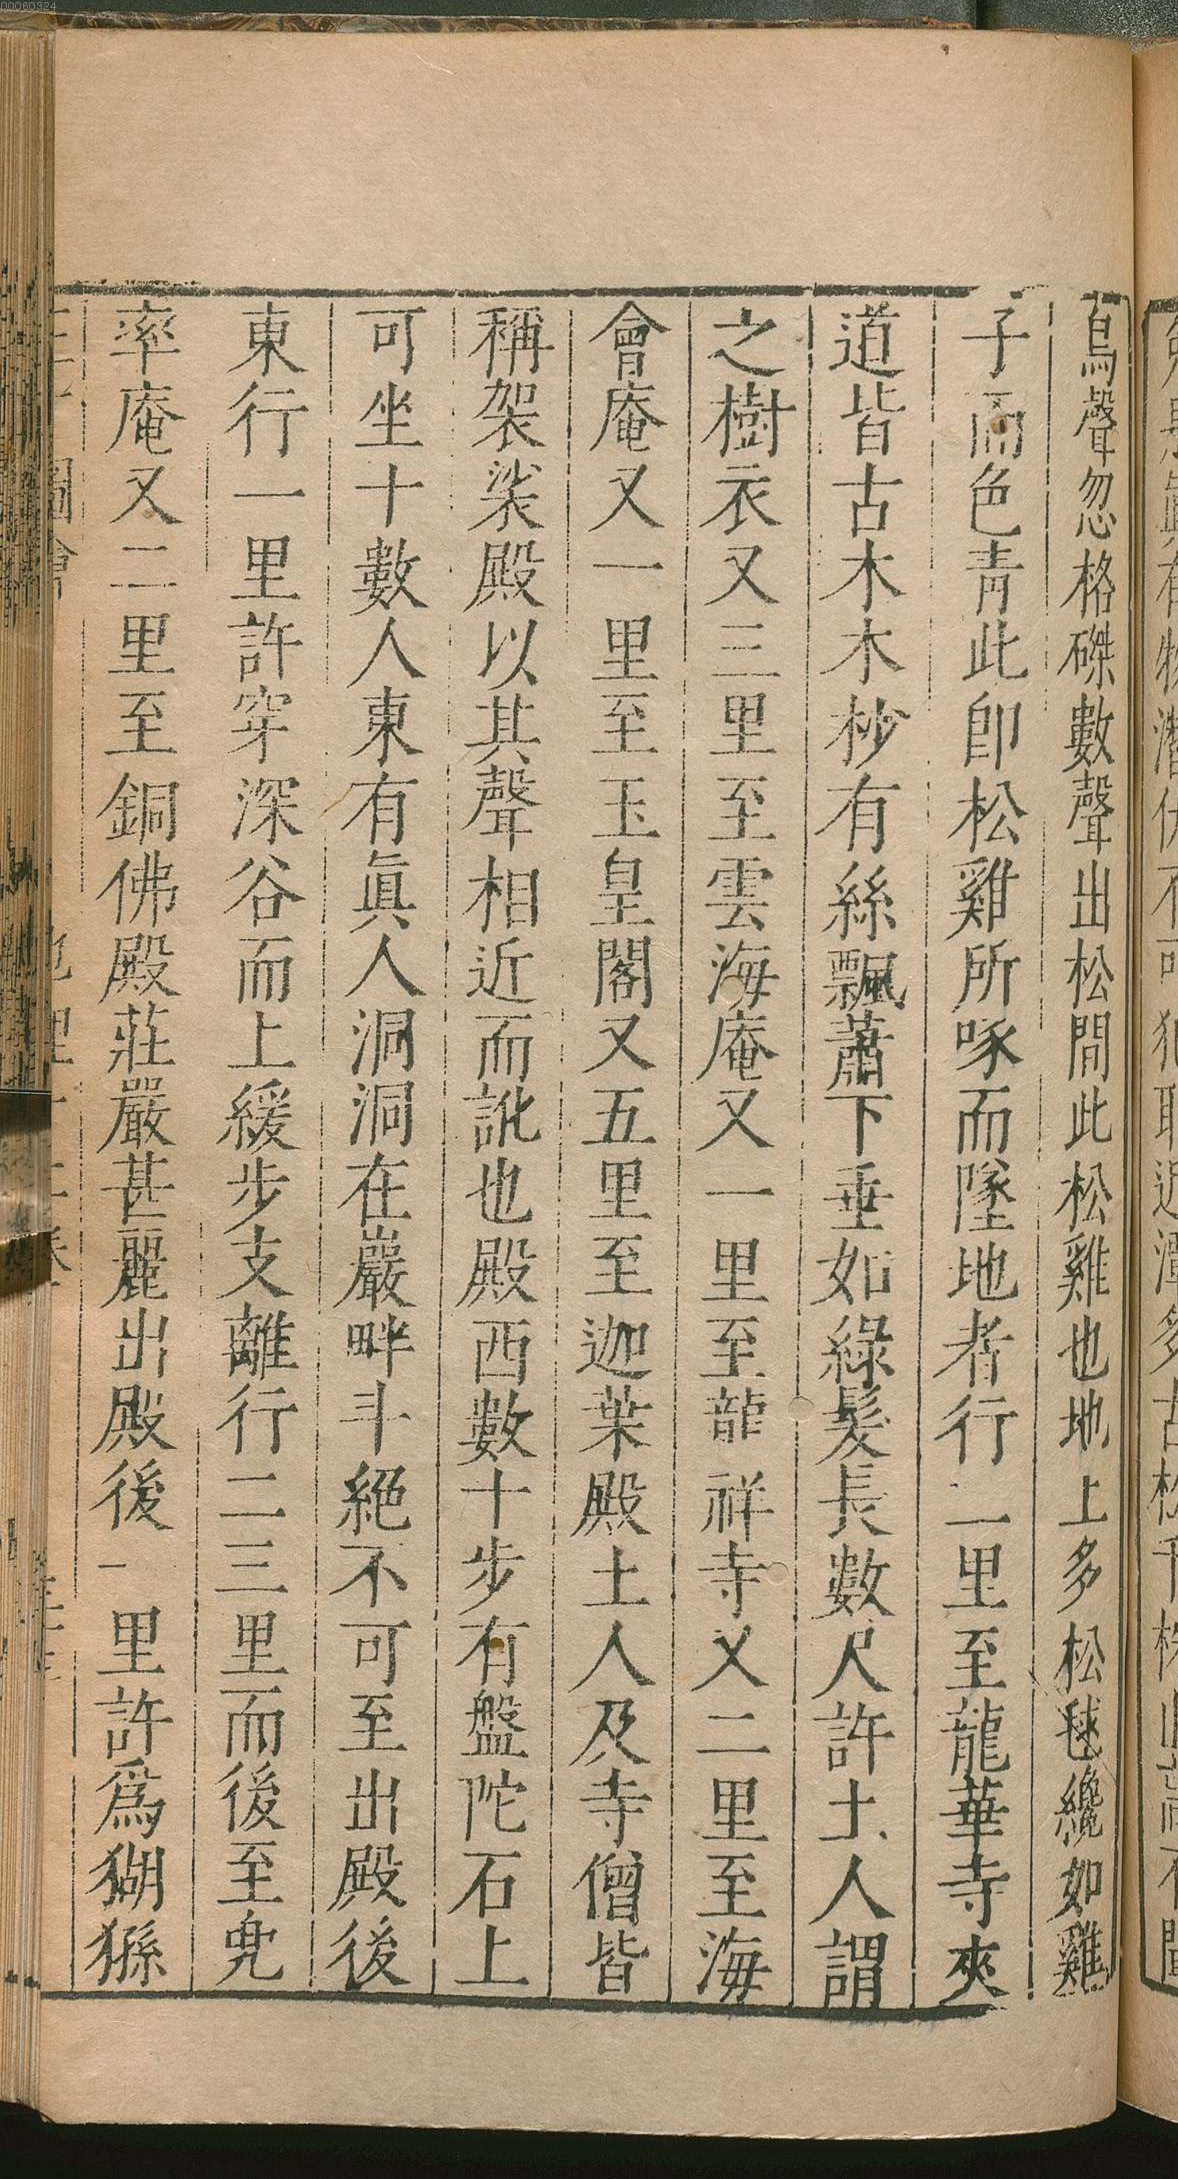 鳥聲忽格磔數聲出松間此松雞也地上多松毬纔如雞
子而色青此卽松雞所啄而墜地者行二里至龍華寺夾
道皆古木木杪有絲飄蕭下垂如綠髮長數尺許土人謂
之樹衣又三里至雲海庵又一里至龍祥寺又二里至海
會庵又一里至玉皇閣又五里至迦葉殿土人及寺僧皆
稱袈裟殿以其聲相近而訛也殿西數十步有盤陀石上
可坐十數人東有眞人洞洞在巖畔斗絕不可至出殿後
東行一里許穿深谷而上緩步支離行二三里而後至兜
率庵又二里至銅佛殿莊嚴甚麗出殿後一里許爲猢猻
00060324